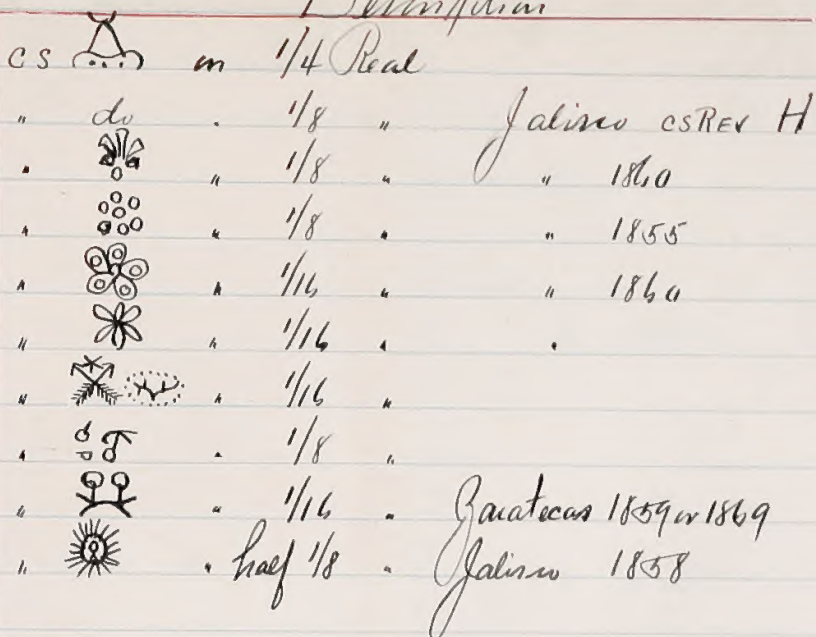 Description
CS on 1/4 Real
" do " 1/8 " Jalisco CSREV H
" " 1/8 " " 1860
" " 1/8 " " 1855
" " 1/16 " " 1860
" " 1/16 " "
" " 1/16 "
" " 1/8 "
" " 1/16 " Zacatecas 1859 or 1869
" " half 1/8 " Jalisco 1858